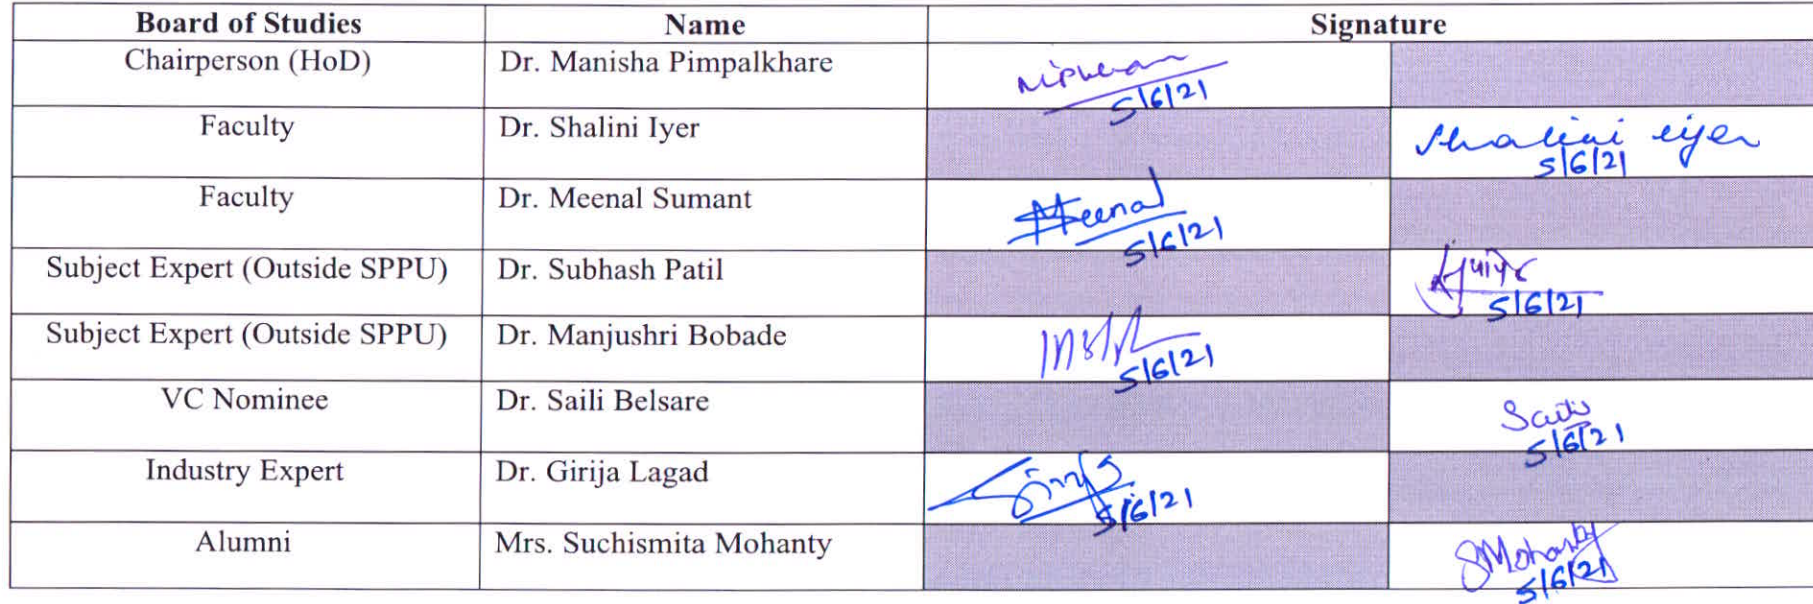 Board of Studies Name Signature
Chairperson (HoD) Dr. Manisha Pimpalkhare
5/6/21
Faculty Dr. Shalini Iyer Shalini Iyer
5/6/21
Faculty Dr. Meenal Sumant Meenal
5/6/21
Subject Expert (Outside SPPU) Dr. Subhash Patil
5/6/21
Subject Expert (Outside SPPU) Dr. Manjushri Bobade
5/6/21
VC Nominee Dr. Saili Belsare Saili
5/6/21
Industry Expert Dr. Girija Lagad
5/6/21
Alumni Mrs. Suchismita Mohanty SMohanty
5/6/21